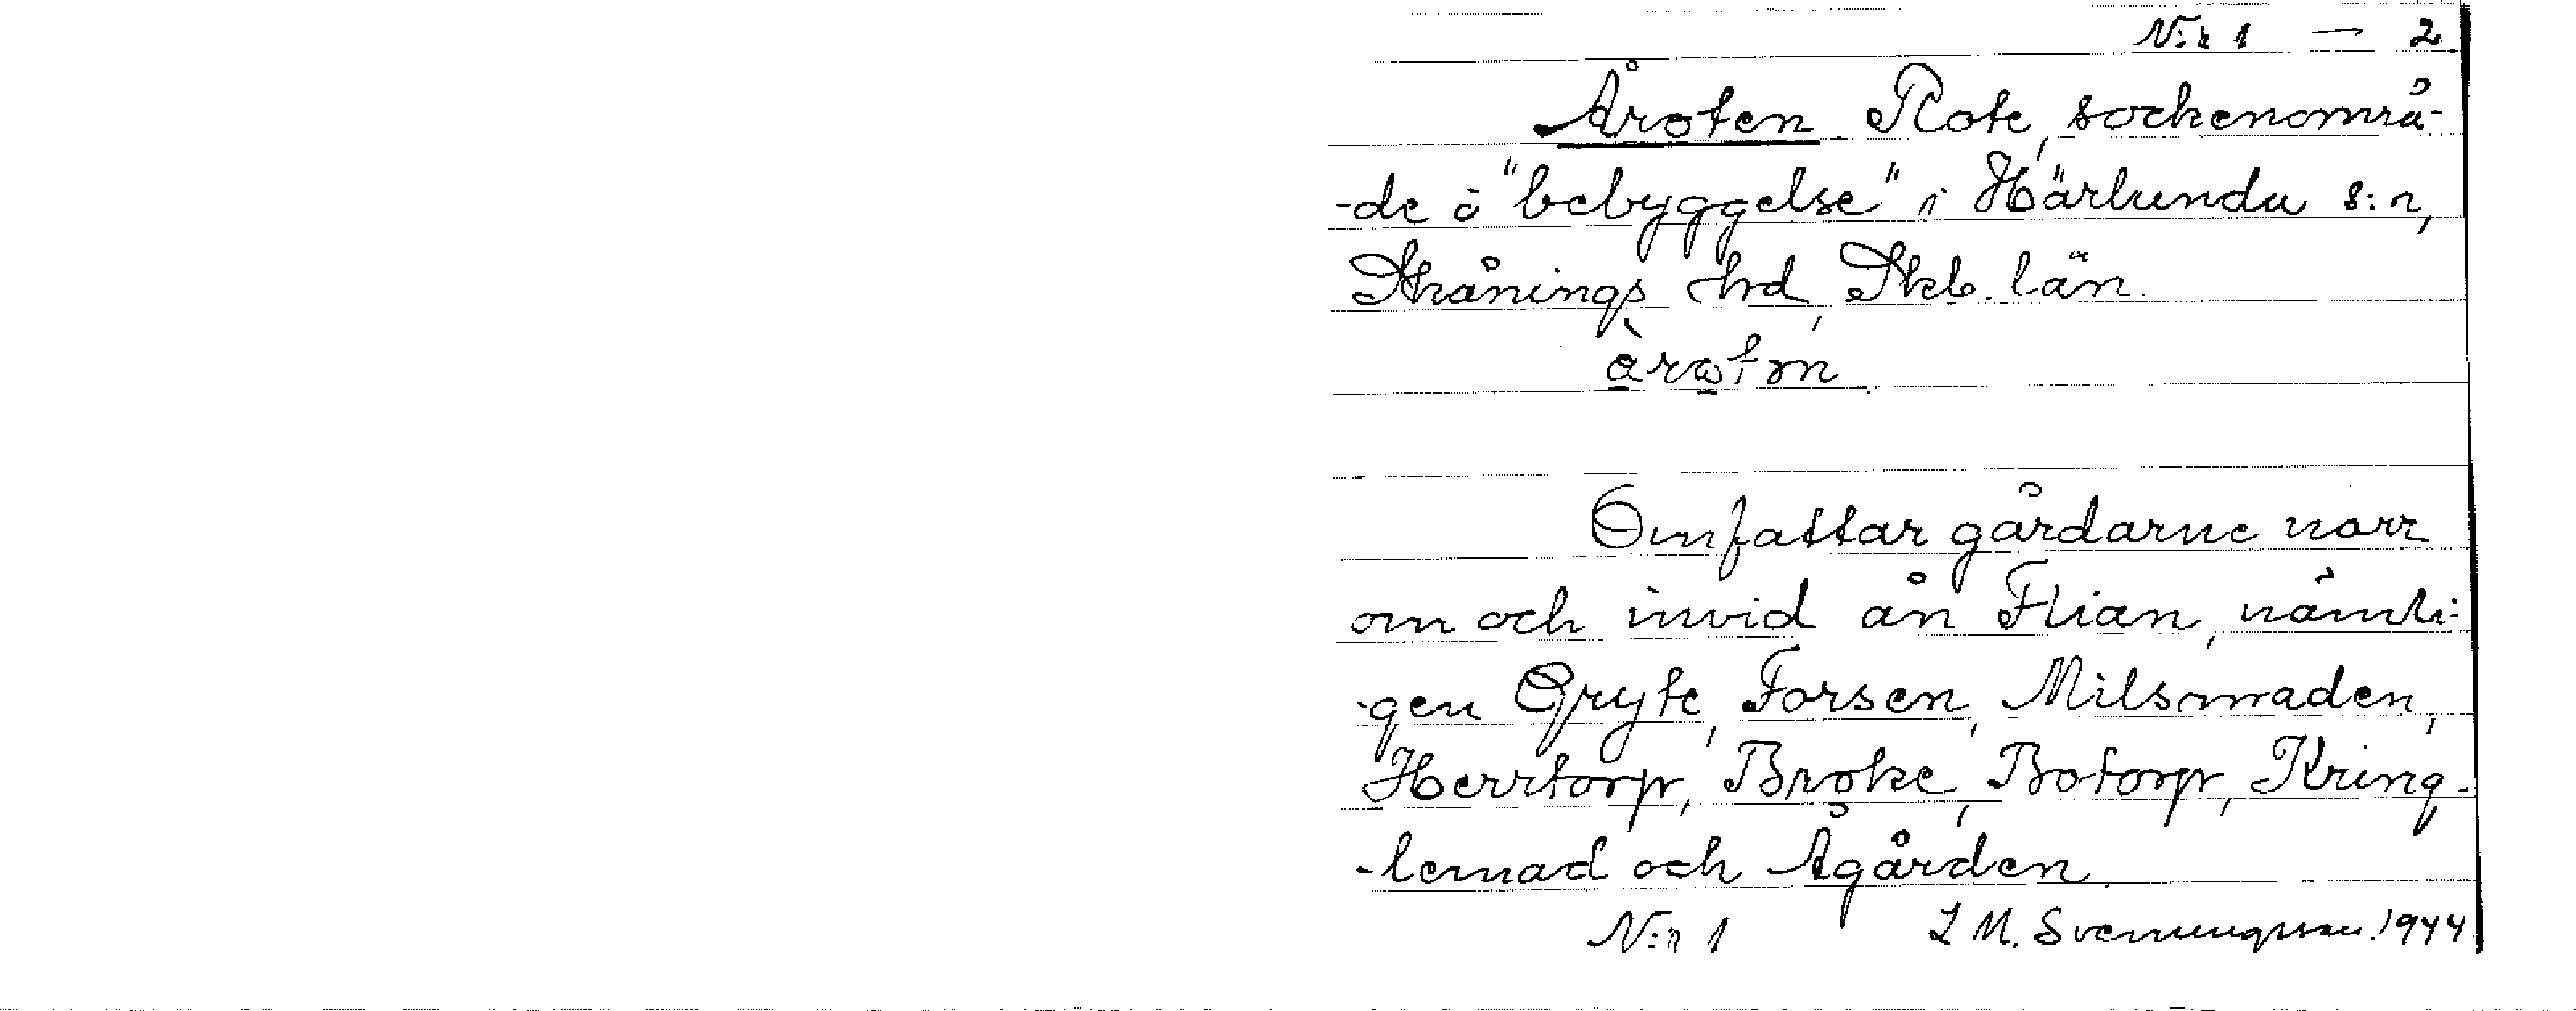 N:r 1 — 2
Åroten. Rote, sockenområ-
-de o "bebyggelse" i Härlunda s:n,
Skånings hrd, Skb. län.
åroten
Omfattar gårdarne norr
om och invid ån Flian, nämli-
-gen Gryte, Forsen, Milsmaden,
Herrtorp, Broke, Botorp, Kring-
-lemad och Ågården.
N:r 1 L M. Svenungsson. 1944